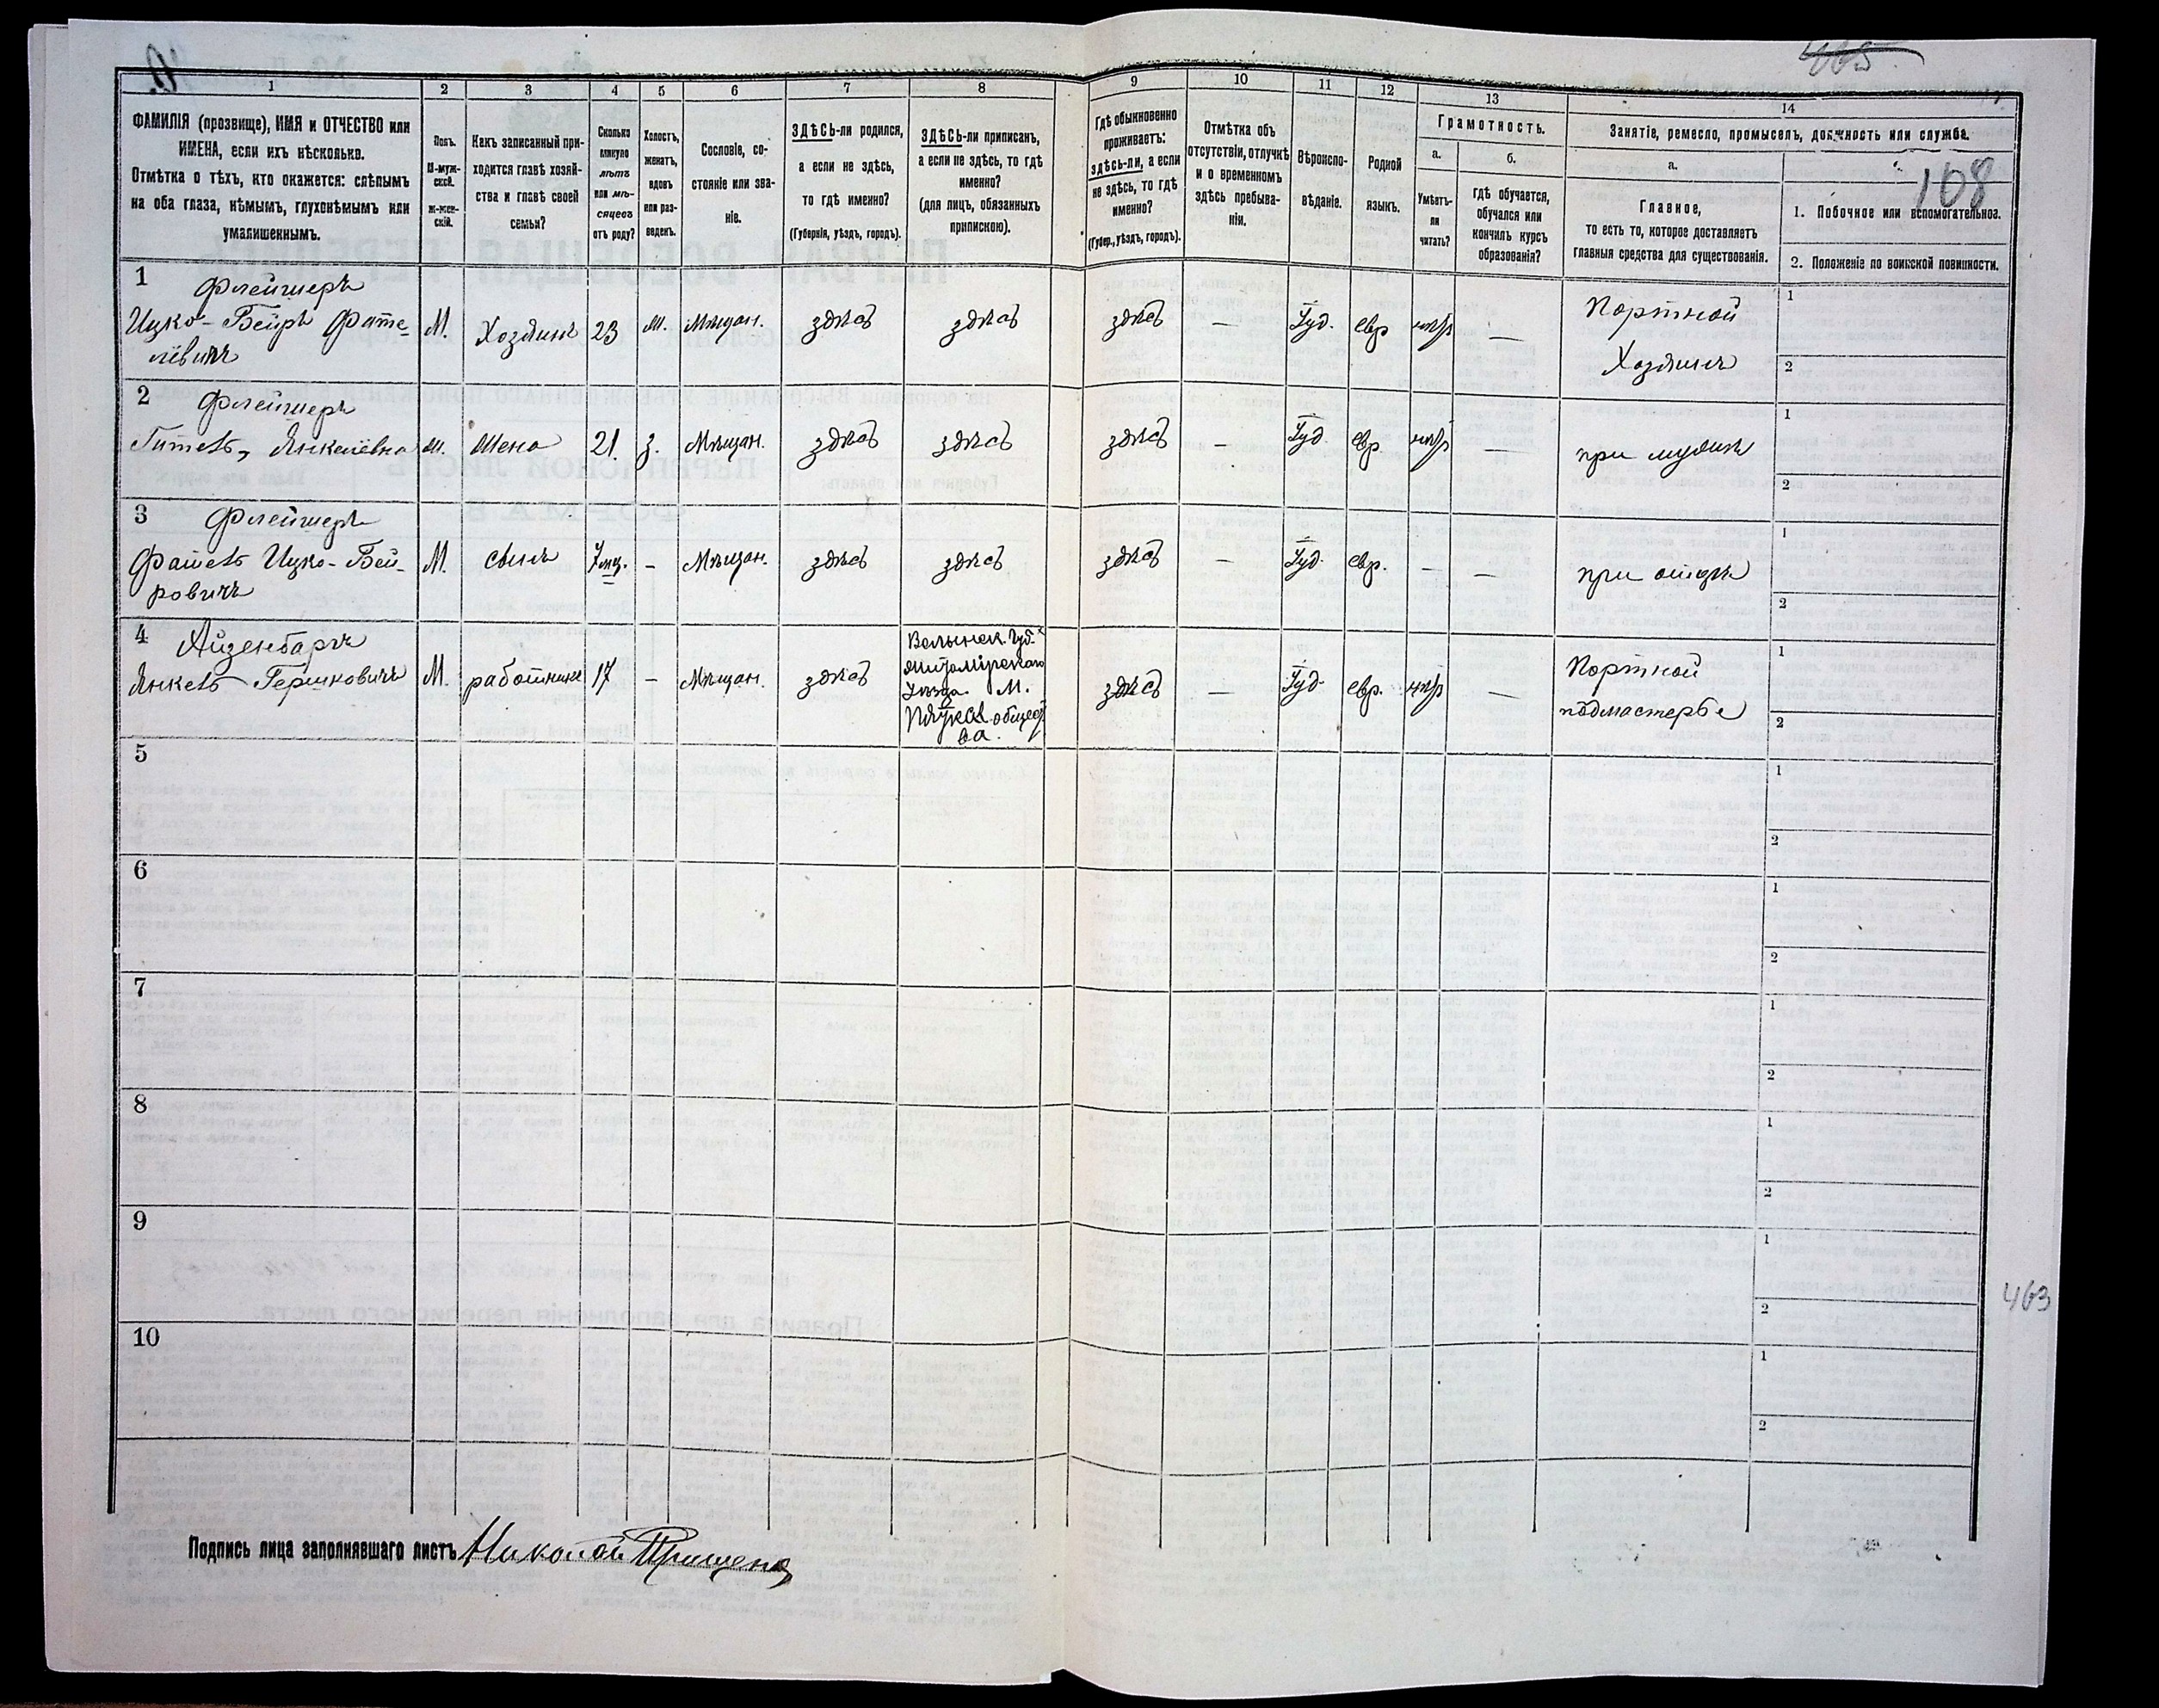 465
108
1 2 3 4 5 6 7 8 9 10 11 12 13 14
ФАМИЛІЯ (прозвище), ИМЯ и ОТЧЕСТВО или
ИМЕНА, если ихъ нѣсколько.
Отмѣтка о тѣхъ, кто окажется: слѣпымъ
на оба глаза, нѣмымъ, глухонѣмымъ или
умалишеннымъ.
Полъ.
М-муж-
ской.
Ж-жен-
скій.
Какъ записанный при-
ходится главѣ хозяй-
ства и главѣ своей
семьи?
Сколько
минуло
лѣтъ
или мѣ-
сяцевъ
отъ роду?
Холостъ,
женатъ,
вдовъ
или раз-
веденъ.
Сословіе, со-
стояніе или зва-
ніе.
ЗДѢСЬ-ли родился,
а если не здѣсь,
то гдѣ именно?
(Губернія, уѣздъ, городъ).
ЗДѢСЬ-ли приписанъ,
а если не здѣсь, то гдѣ
именно?
(для лицъ, обязанныхъ
припискою).
Гдѣ обыкновенно
проживаетъ:
здѣсь-ли, а если
не здѣсь, то гдѣ
именно?
(Губер., уѣздъ, городъ).
Отмѣтка объ
отсутствіи, отлучкѣ
и о временномъ
здѣсь пребыва-
ніи.
Вѣроиспо-
вѣданіе.
Родной
языкъ.
Грамотность.
а.
Умѣетъ-
ли
читать?
б.
Гдѣ обучается,
обучался или
кончилъ курсъ
образованія?
Занятіе, ремесло, промыселъ, должность или служба.
а.
Главное,
то есть то, которое доставляетъ
главныя средства для существованія.
1. Побочное или вспомогательное.
2. Положеніе по воинской повинности.
1 Флейшеръ
Ицко-Бейръ Фате-
лѣвичъ
М. Хозяинъ 23 ж. Мѣщан. здѣсь здѣсь здѣсь — Іуд. евр нѣтъ —
Портной
Хозяинъ
1
2
2 Флейшеръ
Янкелевна
ж. Жена 21. з. Мѣщан. здѣсь здѣсь здѣсь — Іуд. евр. нѣтъ — при мужѣ
1
2
3 Флейшеръ
Ицко-Бей-
ровичъ
М. сынъ 7 мц. - Мѣщан. здѣсь здѣсь здѣсь — Іуд. евр. - — при отцѣ
1
2
4 Айзенбергъ
Янкель Гершковичъ
М. работникъ 17 - Мѣщан. здѣсь
Волынск. Губ.
Житомірскаго
Уѣзда М.
общест
ва.
здѣсь — Іуд. евр. нѣтъ —
Портной
подмастерье
1
2
5
1
2
6
1
2
7
1
2
8
1
2
9
1
2
463
10
1
2
Подпись лица заполнявшаго листъ Николай